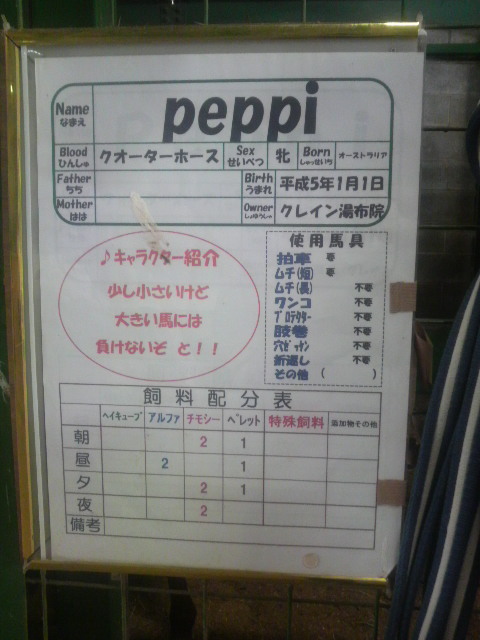 Name
なまえ
peppi
Blood
ひんしゅ
クオーターホース
Sex
せいべつ
牝
Born
しゅっせいち
オーストラリア
Father
ちち
Birth
うまれ
平成5年1月1日
Mother
はは
Owner
しょゆうしゃ
クレイン湯布院
♪キャラクター紹介
少し小さいけど
大きい馬には
負けないぞ と!!
使用馬具
拍車 要
ムチ(短) 要
ムチ(長) 不要
ワンコ 不要
プロテクター 不要
肢巻 不要
穴ゼッケン 不要
折返し 不要
その他 ( )
飼料配分表
ヘイキューブ アルファ チモシー ペレット 特殊飼料 添加物その他
朝 2 1
昼 2 1
夕 2 1
夜 2
備考